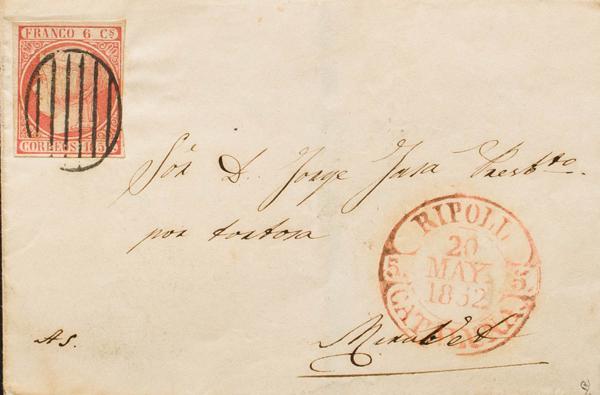 FRANCO 6 Cs
CORREOS 1852
Sór D. Jorge Jasa Presbto.
por tortosa
RIPOLL
20
MAY.
1852
CATALUÑA
As. Mirabet